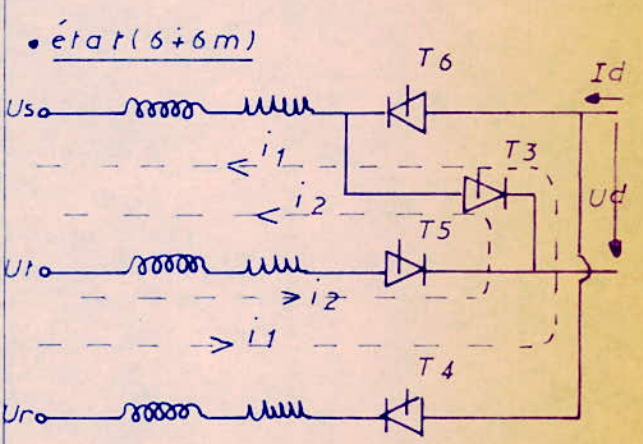 • état(6+6m)
T6
Id
Us
i1
T3
i2
Ud
T5
Ut
i2
i1
T4
Ur